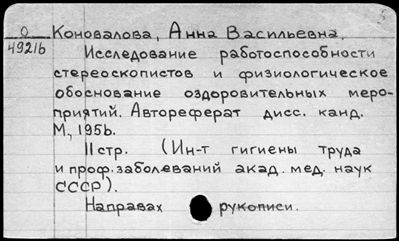 О Коновалова, Анна Васильевна.
4921б Исследование работоспособности
стереоскопистов и физиологическое
обоснование оздоровительных меро-
приятий. Автореферат дисс. канд.
М., 195б.
11 стр. (Ин-т гигиены труда
и проф. заболеваний акад. мед. наук
СССР).
Направах рукописи.